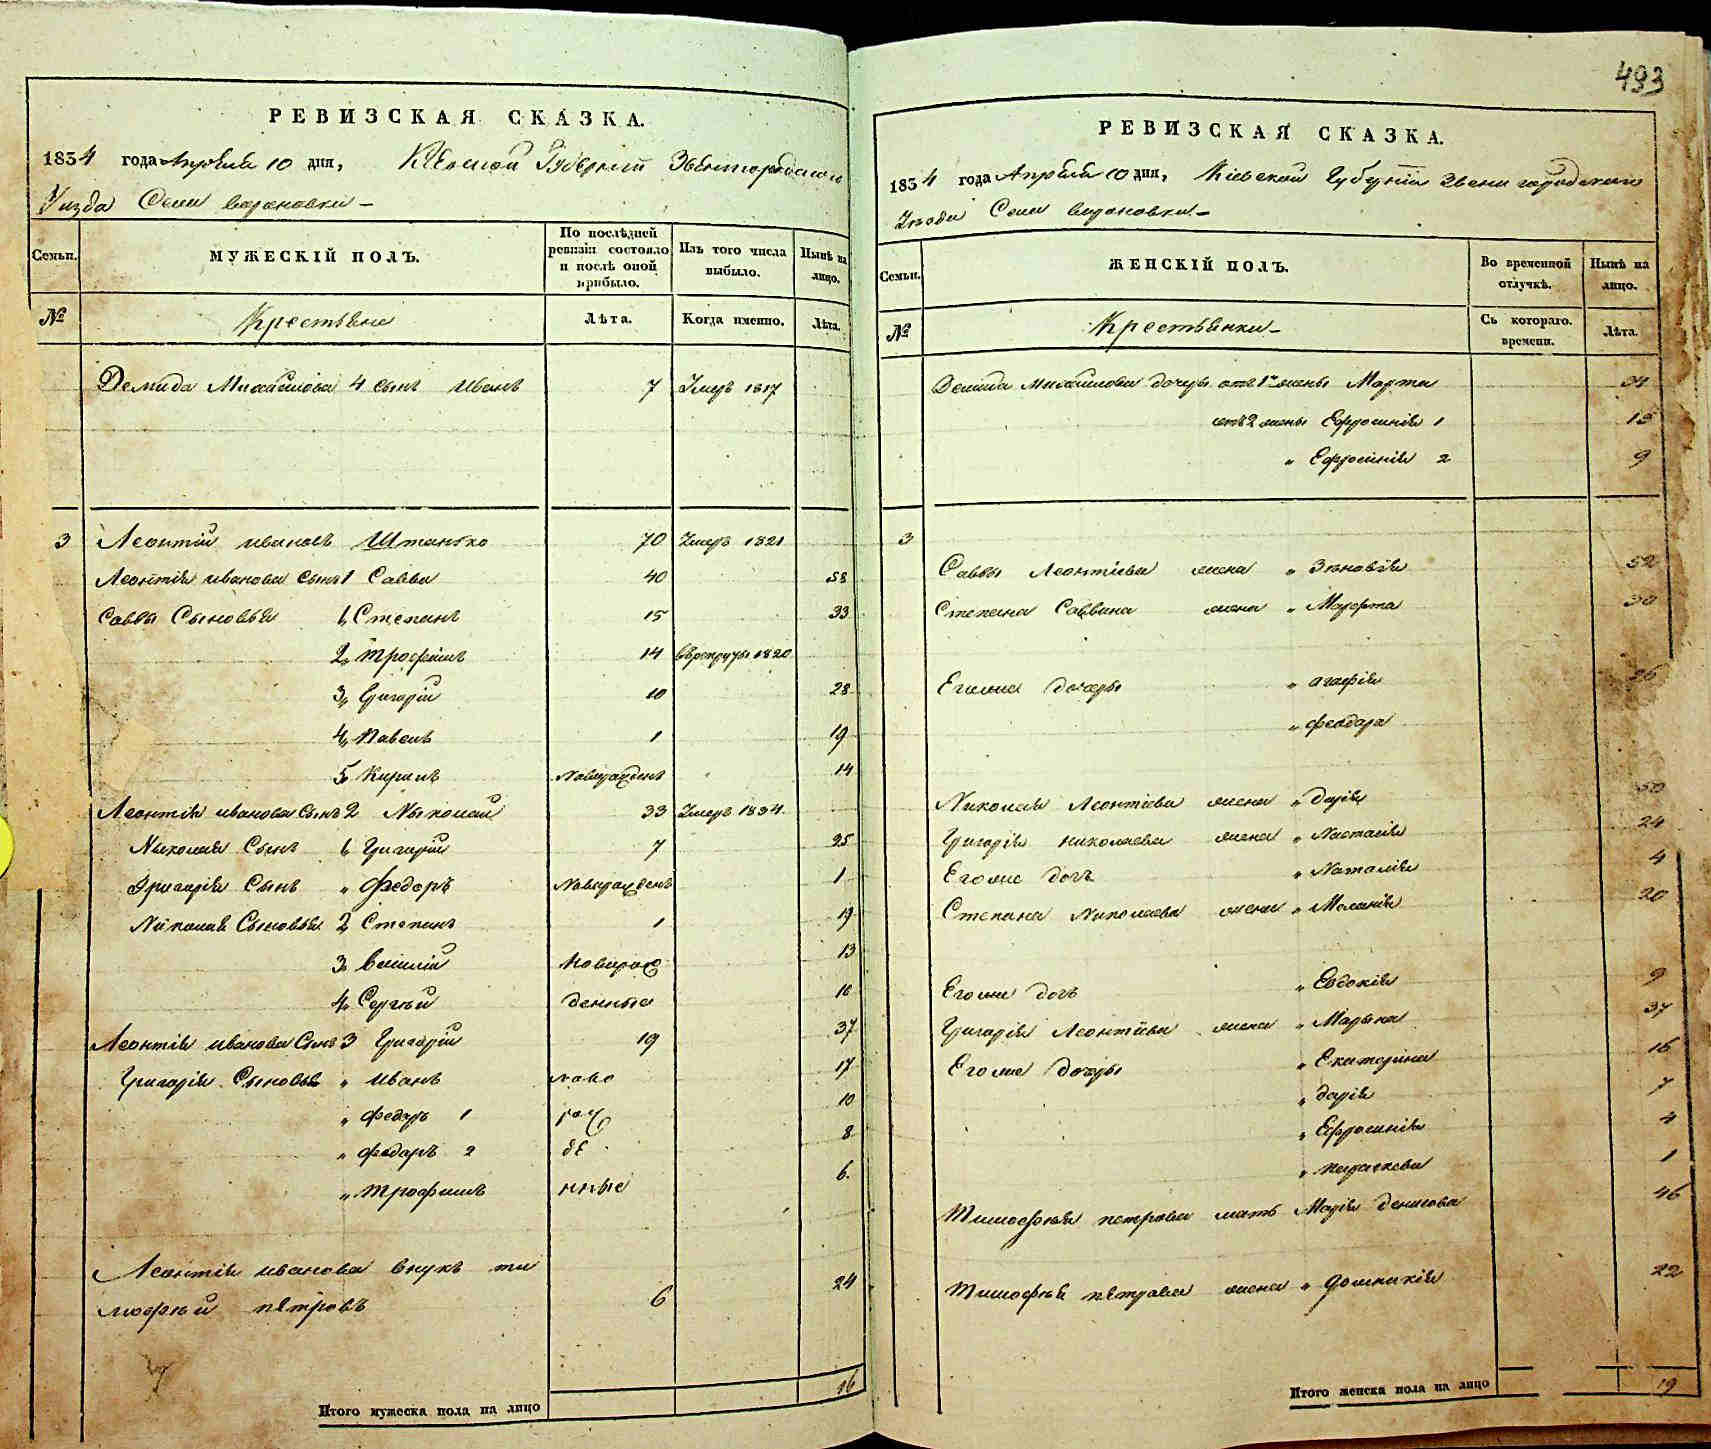 РЕВИЗСКАЯ СКАЗКА.
1834 года Апреля 10 дня, Киевской Губернии Звенигородского
Уезда Села
Семьи. МУЖЕСКІЙ ПОЛЪ. По послѣдней ревизіи состояло и послѣ оной прибыло. Изъ того числа выбыло. Нынѣ на лицо.
№ Крестьяне Лѣта. Когда именно. Лѣта.
Демида Михайлова 4 сынъ Иванъ 7 Умеръ 1817
3 Леонтій Ивановъ Штанько 70 Умеръ 1821
Леонтія Иванова Сынъ 1 Савва 40 58
Саввы Сыновья 1, Степанъ 15 33
2, Трофимъ 14 в рекруты 1820
3, Григорій 10 28
4, Павелъ 1 19
5, Кирилъ Новорожденъ 14
Леонтія Иванова Сынъ 2 Николай 33 Умеръ 1834
Николая Сынъ 1, Григорій 7 25
Григорія Сынъ „ Федоръ Новорожденъ 1
Николая Сыновья 2, Степанъ 1 19
3, Василій Новорож 13
4, Сергѣй денные 10
Леонтія Иванова Сынъ 3 Григорій 19 37
Григорія Сыновья „ Иванъ ново 17
„ Федоръ 1 рож 10
„ Федоръ 2 де 8
„ Трофимъ нные 6.
Леонтія Иванова внукъ ти
мофѣй Петровъ 6 24
Итого мужеска пола на лицо 16
493
РЕВИЗСКАЯ СКАЗКА.
1834 года Апреля 10 дня, Кіевской Губерніи Звенигородского
Уезда Села
Семьи. ЖЕНСКІЙ ПОЛЪ. Во временной отлучкѣ. Нынѣ на лицо.
№ Крестьянки Съ котораго времени. Лѣта.
Демида Михайлова дочери отъ 1й жены Марта
отъ 2 жены Ефросинія 1 15
„ Ефросинія 2 9
3
Саввы Леонтіева жена „ Зѣновія 52
Степана Саввина жена „ Марфта 30
Его же дочеры „ Агафія 26
„ Феодора
Николая Леонтіева жена „ Дарія 50
Григорія Николаева жена „ Настасія 24
Его же дочь „ Наталія 4
Степана Николаева жена „ Меланія 20
Его же дочь „ Евдокія 9
Григорія Леонтіева жена „ Марына 37
Его же дочеры „ Екатерина 16
„ Дарія 7
„ Ефросинія 4
„ Параскева 1
Тимофѣя Петрова мать Марія Денисова 46
Тимофѣя Петрова жена „ Домникія 22
Итого женска пола на лицо 19